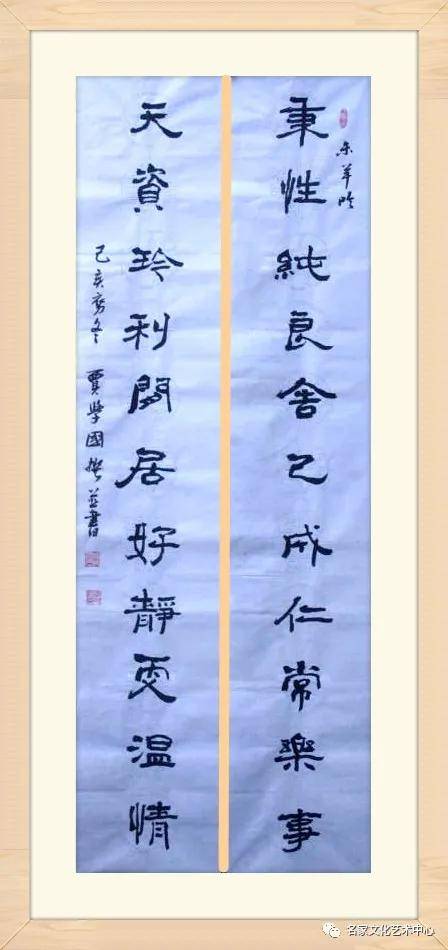 秉性純良舍己成仁常樂事
天資玲利閒居好靜更温情
己亥 冬 賈學國撰並書
名家文化艺术中心